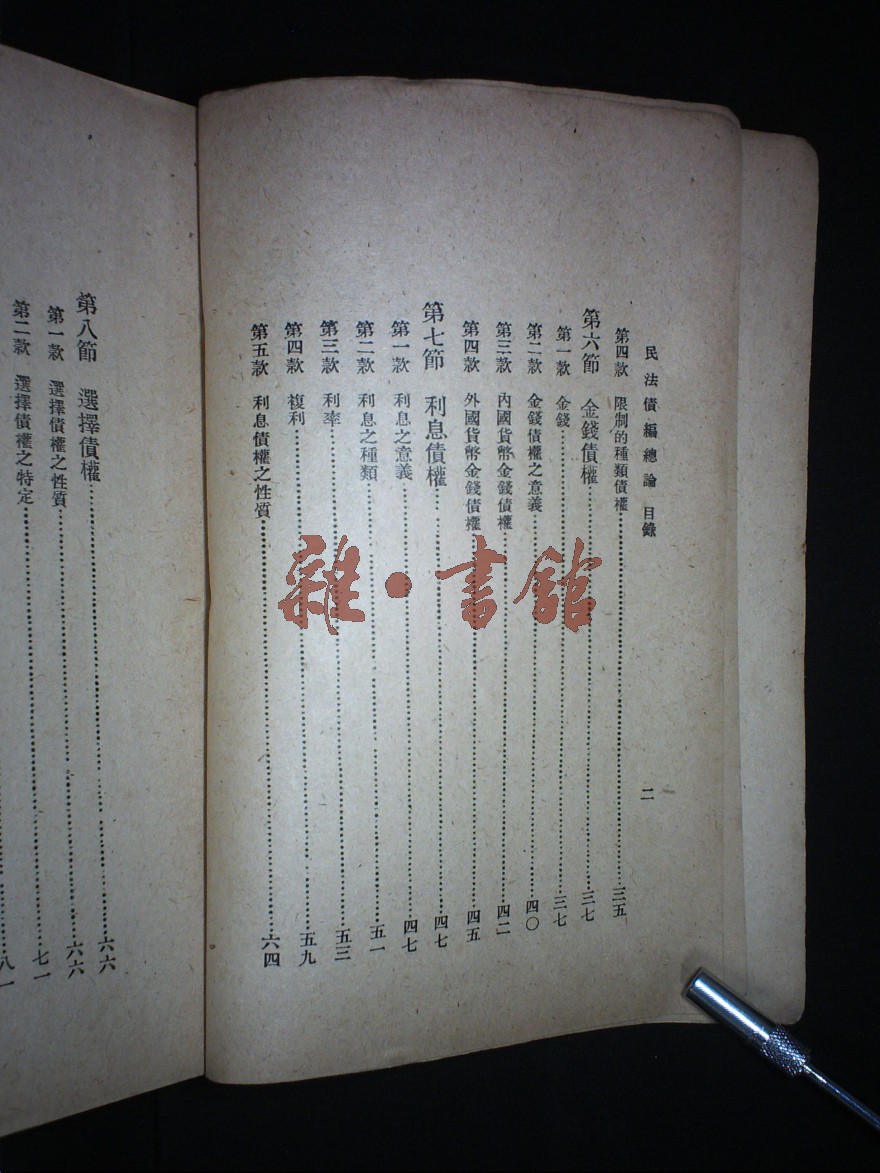 民法債編總論 目錄 二
第四款 限制的種類債權……三五
第六節 金錢債權……三七
第一款 金錢……三七
第二款 金錢債權之意義……四〇
第三款 內國貨幣金錢債權……四二
第四款 外國貨幣金錢債權……四五
第七節 利息債權……四七
第一款 利息之意義……四七
第二款 利息之種類……五一
第三款 利率……五三
第四款 複利……五九
第五款 利息債權之性質……六四
第八節 選擇債權……六六
第一款 選擇債權之性質……六六
第二款 選擇債權之特定……七一
八一
雜·書館